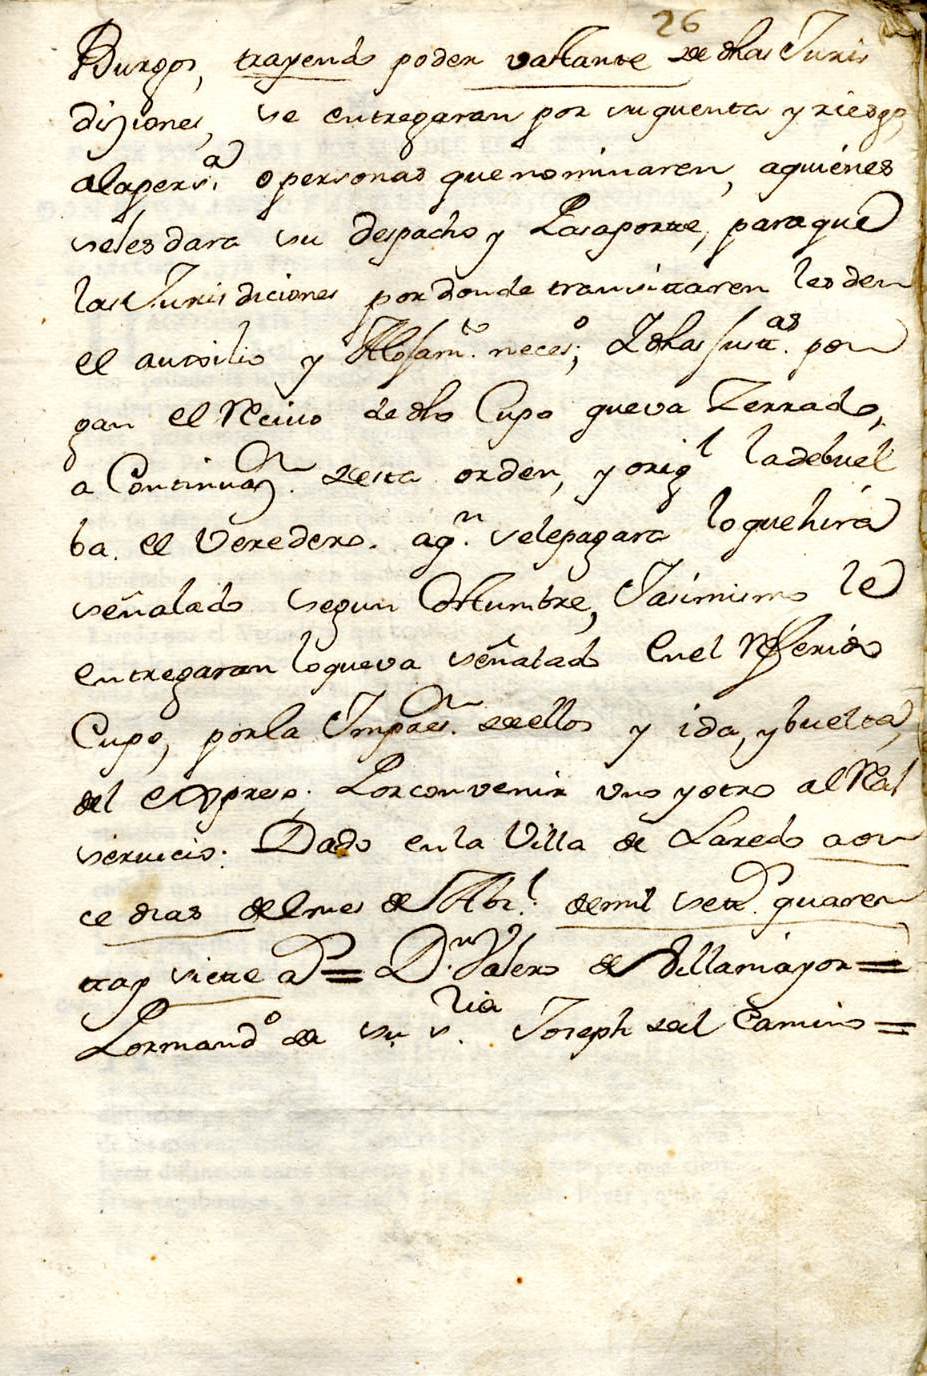 26
Burgos, trayendo poder vastante de dhas Juris
diziones, se entregaran por su quenta y riesgo,
a la pers.ª o personas que nominaren, a quienes
se les dara su despacho y Pasaporte, para que
las Jurisdiciones por donde transittaren les den
el auxilio y Alojam.to neces.o; Y dhas Justt.as pon
gan el Recivo de dho Cupo que va Zerrado,
a Continuaz.n de esta orden, y orig.l la debuel
ba el Veredero. a q.n se le pagara lo que hirá
señalado segun Costtumbre, Y asimismo le
entregaran lo que va señalado en el Referido
Cupo, por la Impres.n de ellos y ida, y buelta,
del expreso. Por convenir uno y otro al Real
servicio. Dado en la Villa de Laredo a on
ce dias del mes de Abr.l de mil sete.s quaren
tta y siette a.s = D.n Valero de Villamayor =
Por mand.o de su s.ria Joseph del Camino =